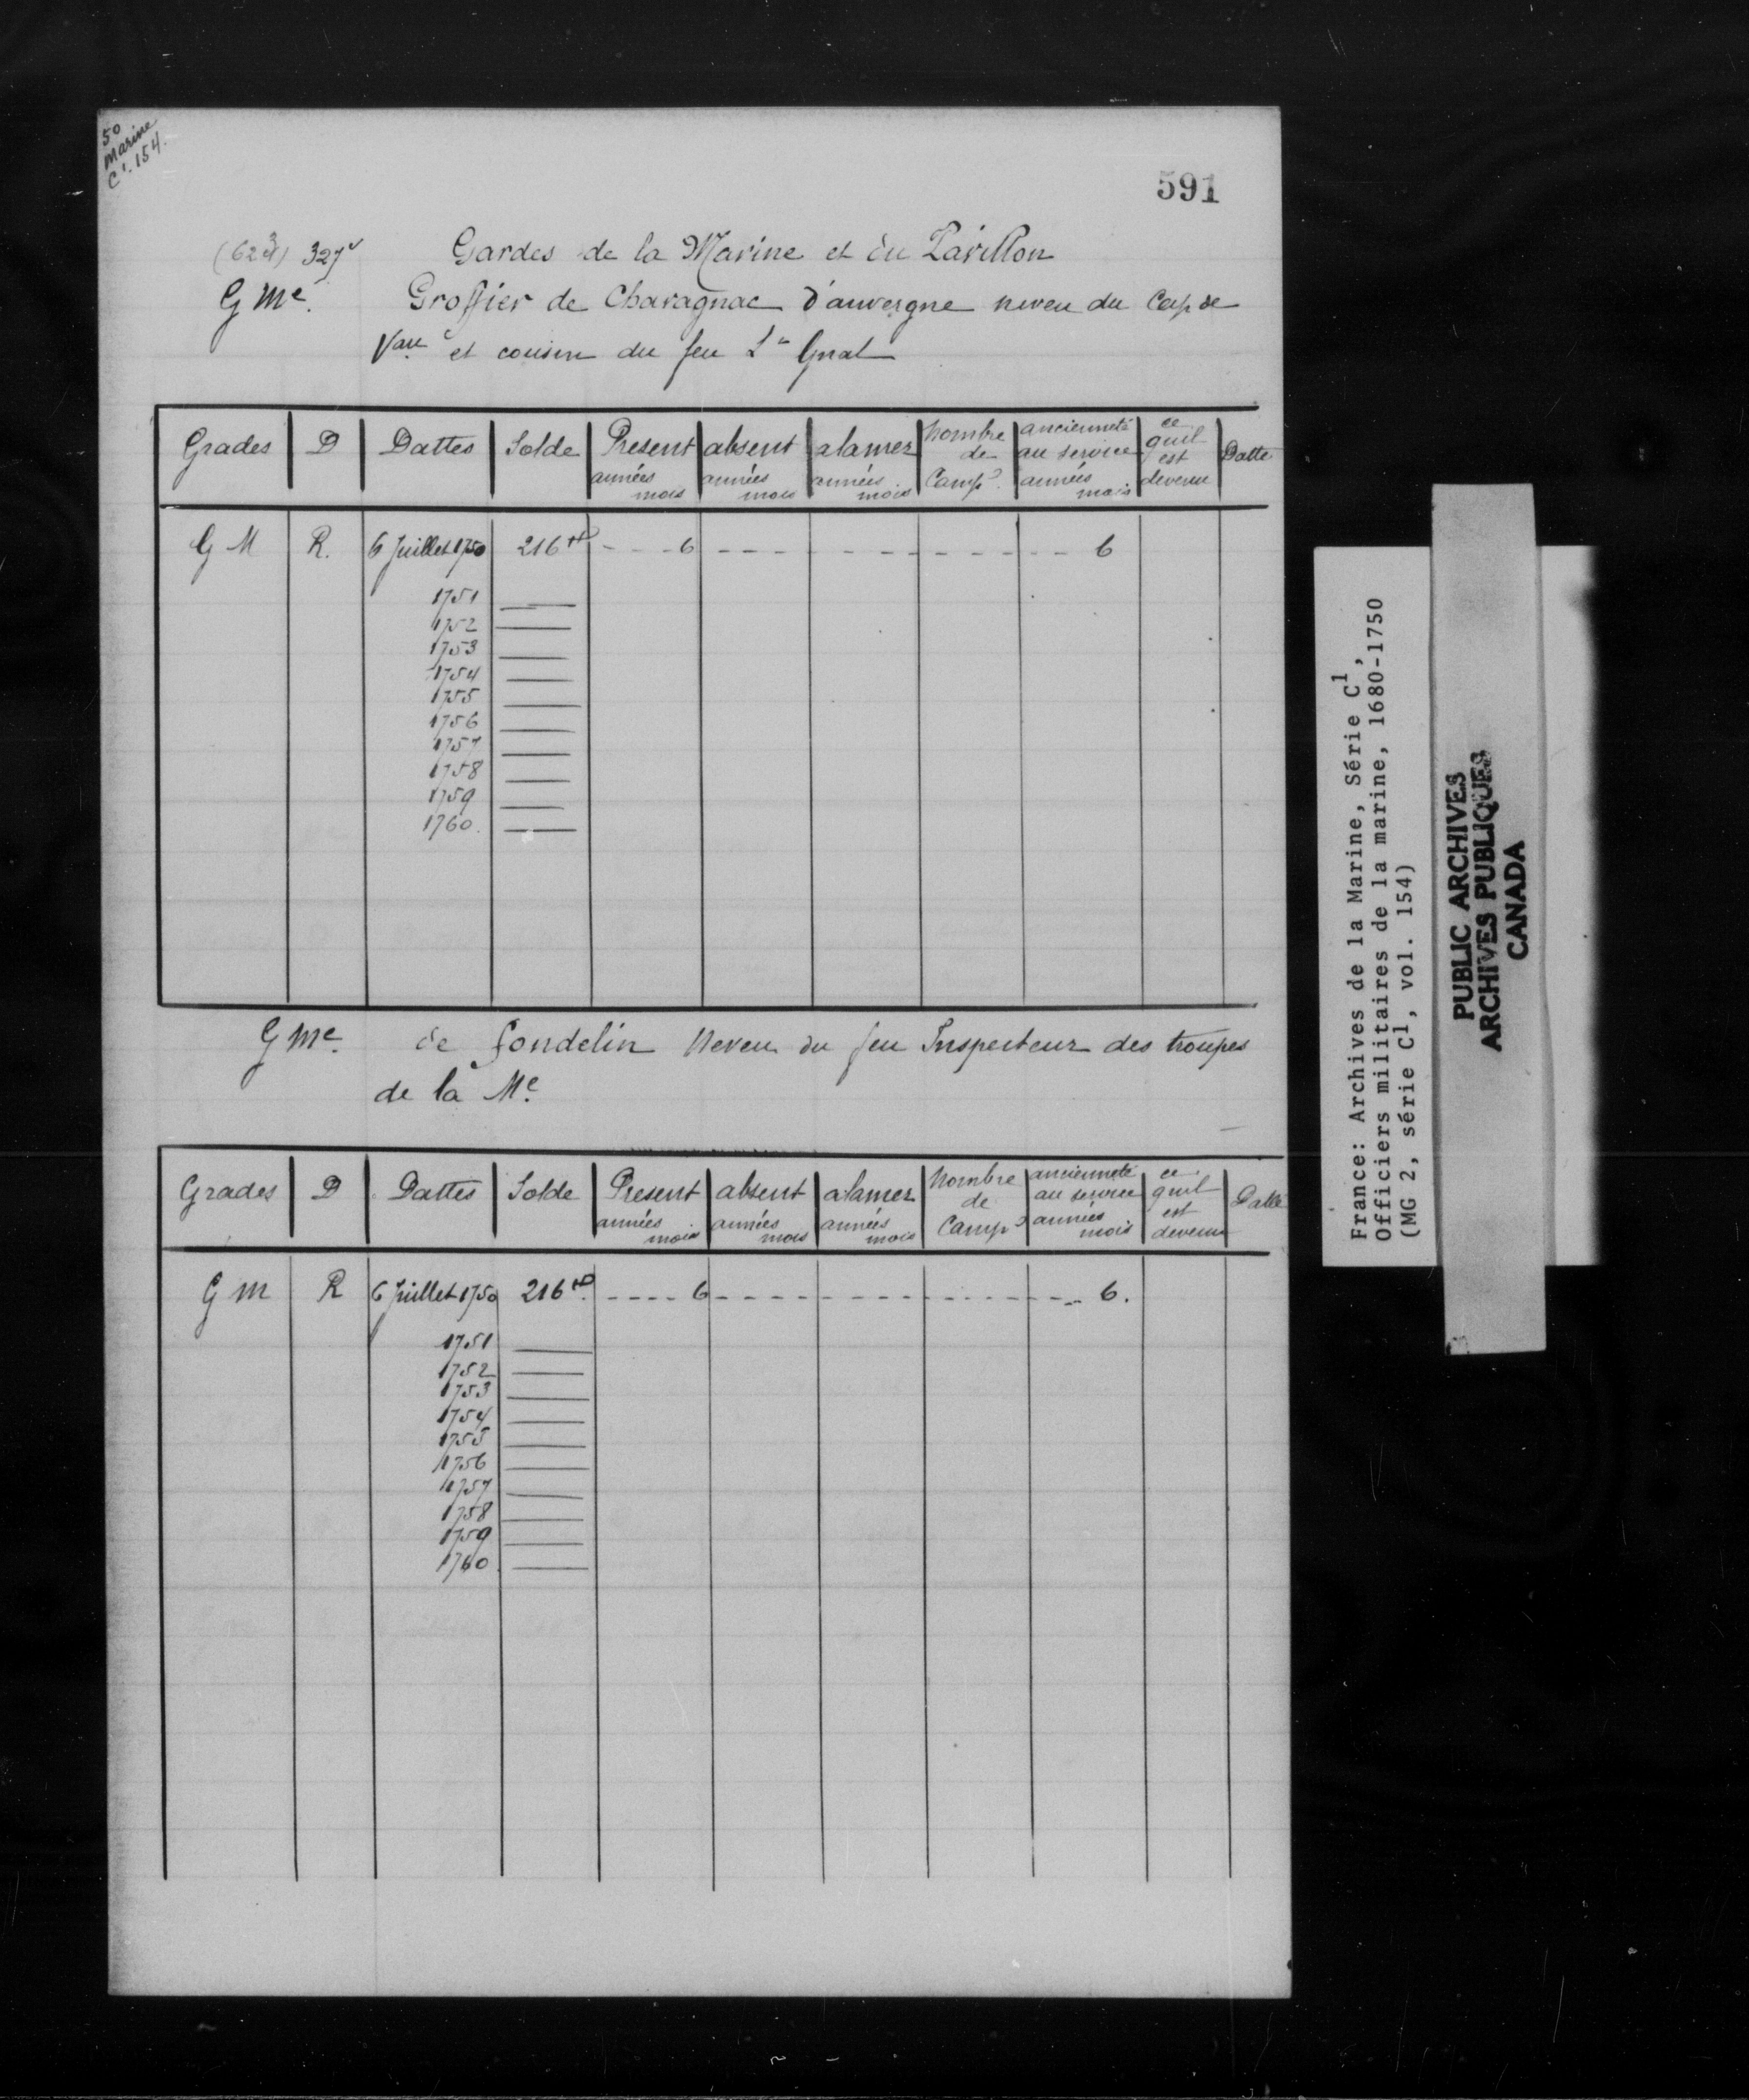 50
Marine
C¹. 154.
591
(623) 327ᵛ Gardes de la Marine et du Pavillon
G Mᵉ. Groffier de Chavagnac d'auvergne neveu du Cap de
Vau et cousin du feu Lᵗ Gnal
Grades D Dattes Solde Present absent alamer Nombre de Campˢ ancienneté au service ce quil est devenu Datte
années mois années mois années mois années mois
G M R. 6 Juillet 1750 216ᵗᵗ - - - 6 - - - - - - - - - - - - 6
1751 ——
1752 ——
1753 ——
1754 ——
1755 ——
1756 ——
1757 ——
1758 ——
1759 ——
1760. ——
G Mᵉ. de Gondelin Neveu du feu Inspecteur des troupes
de la Mᵉ.
Grades D Dattes Solde Present absent alamer Nombre de Campˢ ancienneté au service ce quil est devenu Datte
années mois années mois années mois années mois
G M R 6 Juillet 1750 216ᵗᵗ. - - - - 6 - - - - - - - - - - - - 6.
1751 ——
1752 ——
1753 ——
1754 ——
1755 ——
1756 ——
1757 ——
1758 ——
1759 ——
1760. ——
France: Archives de la Marine, Série C¹,
Officiers militaires de la marine, 1680-1750
(MG 2, série C1, vol. 154)
PUBLIC ARCHIVES
ARCHIVES PUBLIQUES
CANADA